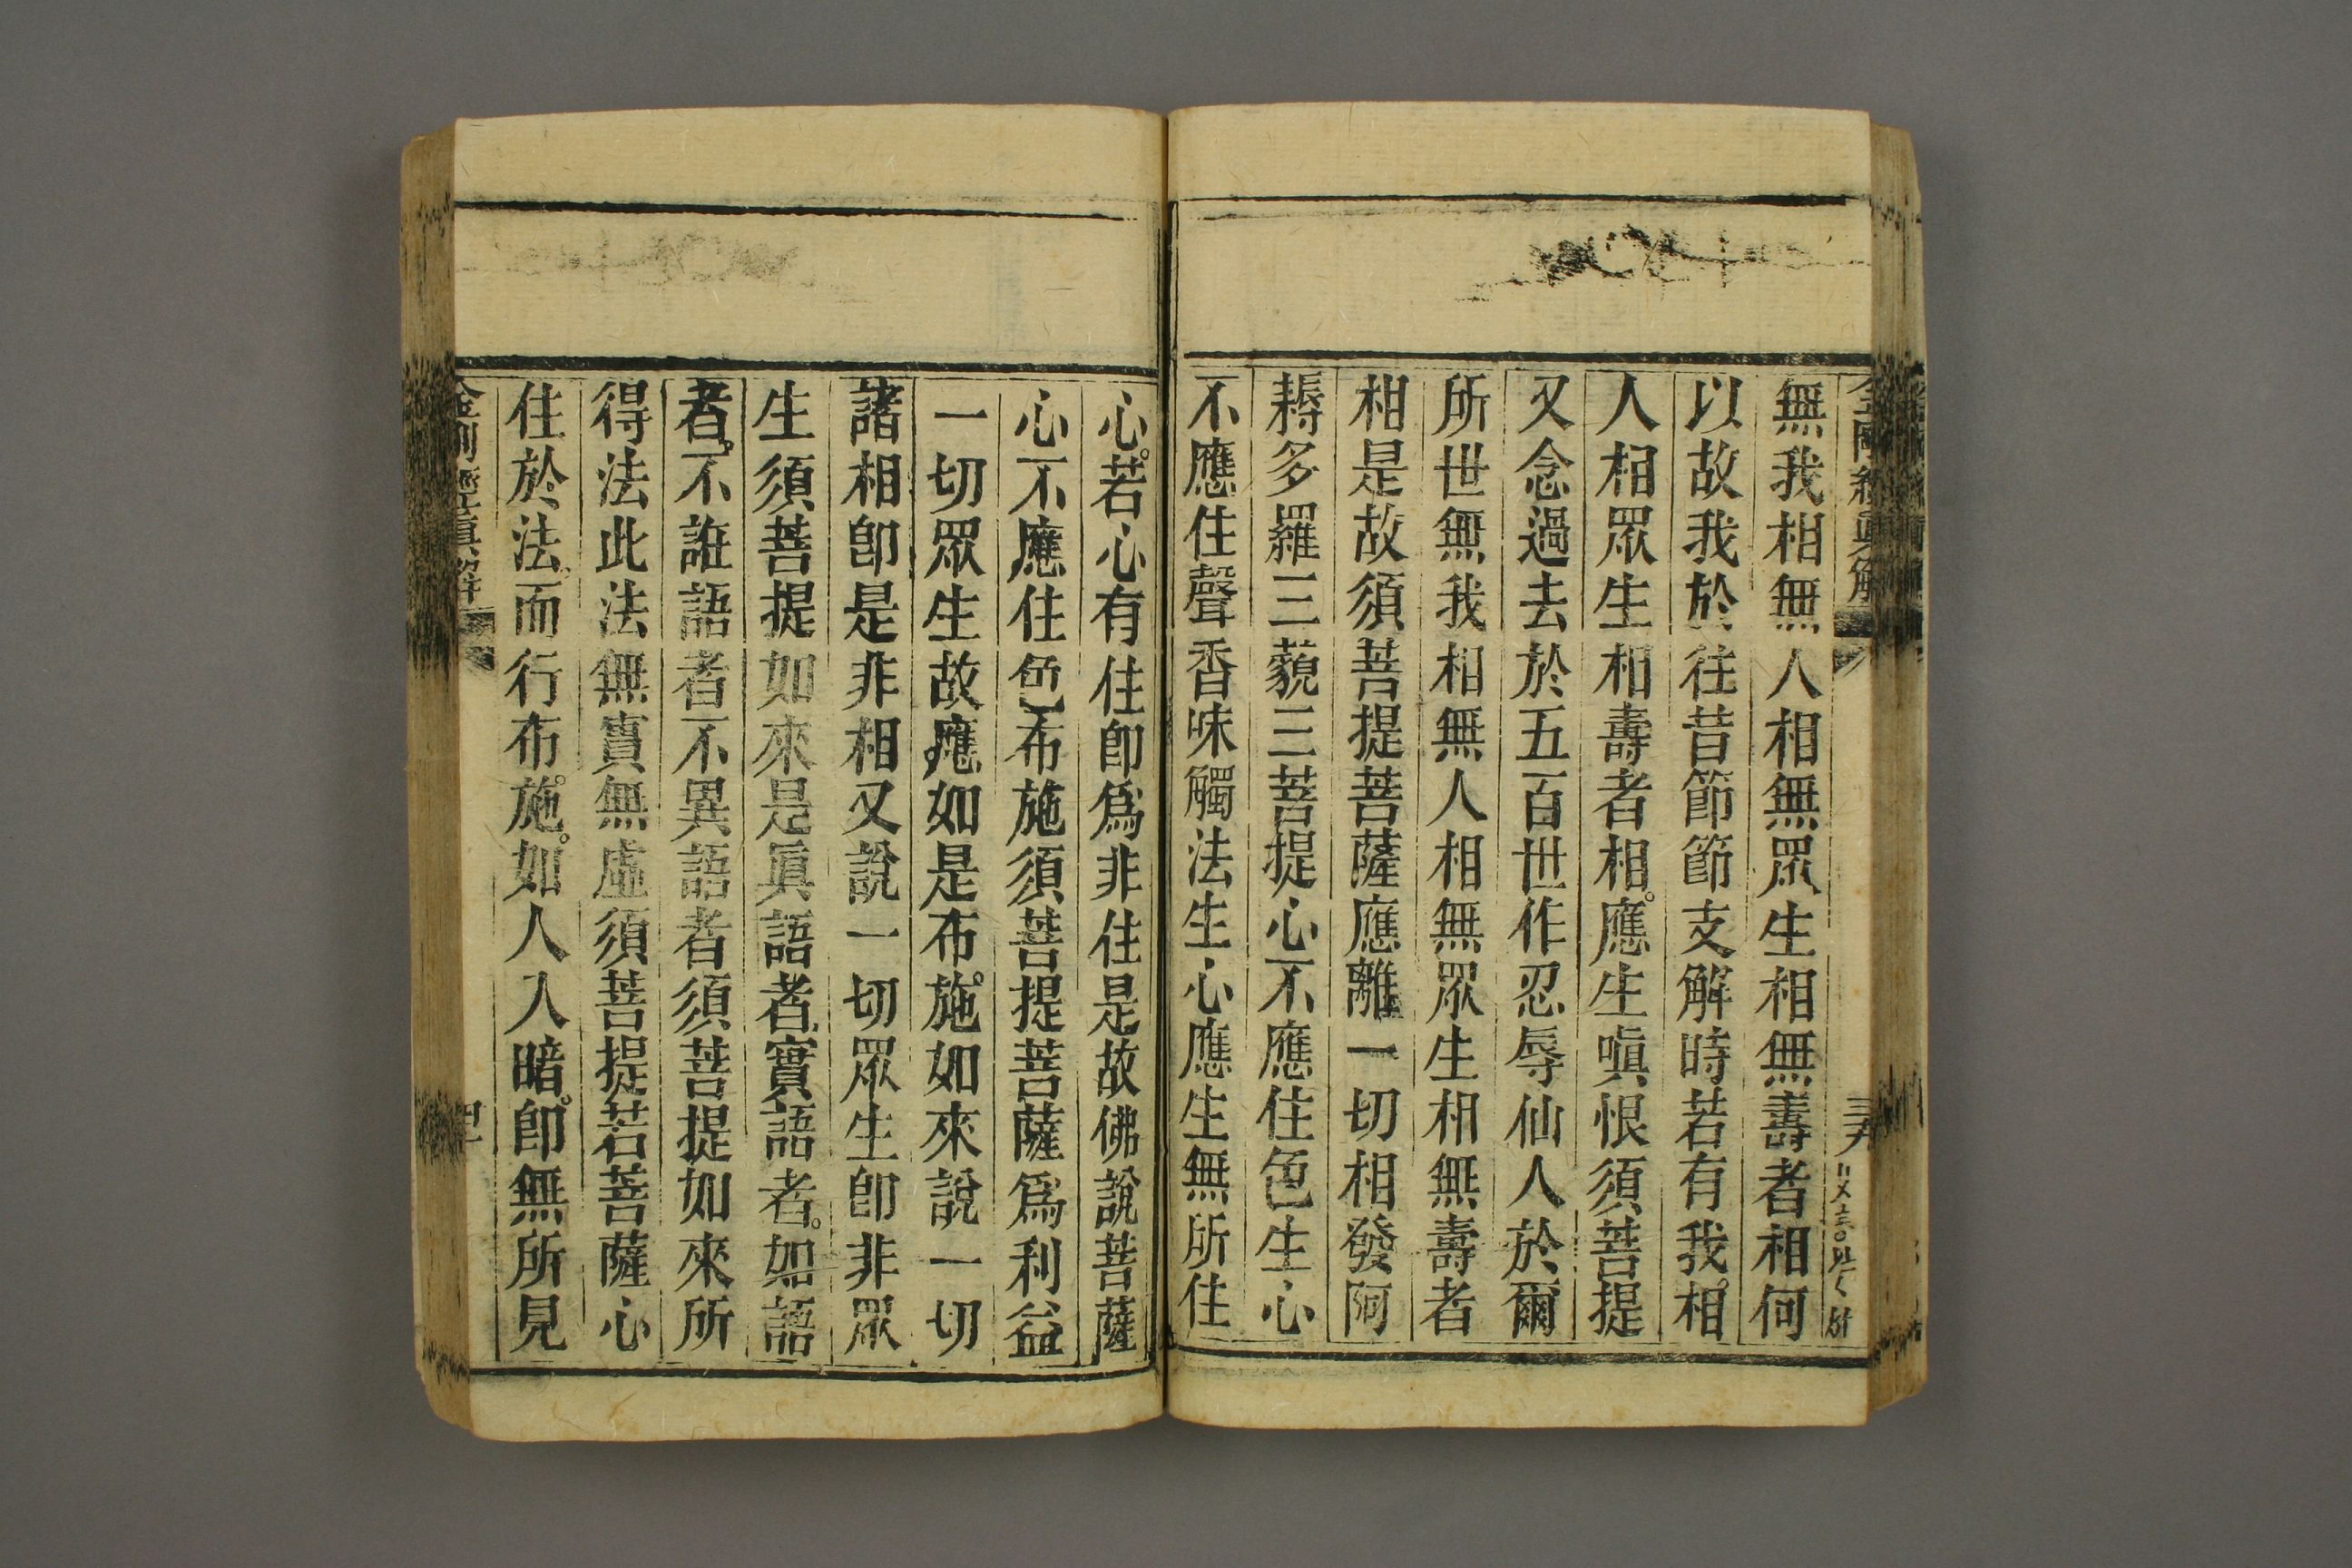 金剛經眞解
無我相無人相無眾生相無壽者相何
以故我於往昔節節支解時若有我相
人相眾生相壽者相。應生嗔恨須菩提
又念過去於五百世作忍辱仙人於爾
所世無我相無人相無眾生相無壽者
相是故須菩提菩薩應離一切相發阿
耨多羅三藐三菩提心不應住色生心
不應住聲香味觸法生心應生無所住
心。若心有住卽爲非住是故佛說菩薩
心不應住色布施須菩提菩薩爲利益
一切眾生故應如是布施。如來說一切
諸相卽是非相又說一切眾生卽非眾
生須菩提如來是眞語者實語者。如語
者。不誑語者不異語者須菩提如來所
得法此法無實無虛須菩提若菩薩心
住於法而行布施。如人入暗。卽無所見
金剛經眞解